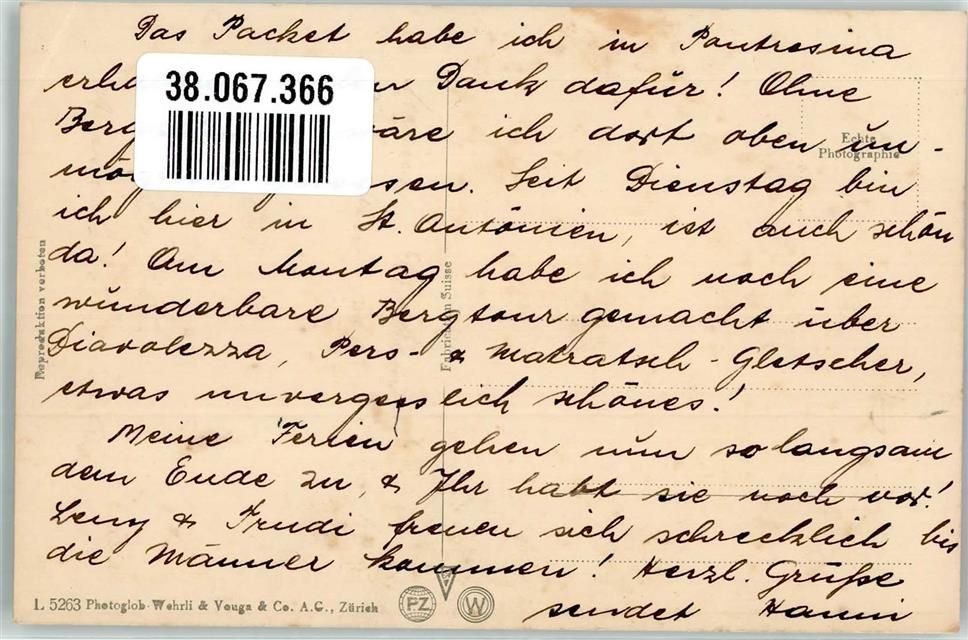 Das Packet habe ich in Pontresina
38.067.366
Dank dafür! Ohne
Berg wäre ich dort oben un-
Echte
Photographie
mög sen. Seit Dienstag bin
ich hier in St. Antönien, ist auch schön
da! Am Montag habe ich noch eine
wunderbare Bergtour gemacht über
Diavolezza, Pers- & Moratsch-Gletscher,
etwas unvergesslich schönes!
Meine Ferien gehen nun so langsam
dem Ende zu, & Ihr habt sie noch vor!
Leny & Trudi freuen sich schrecklich bis
die Männer kommen! Herzl. Grüße
sendet Hanni
Reproduktion verboten
Fabriqué en Suisse
L 5263 Photoglob-Wehrli & Vouga & Co. A.G., Zürich
PZ
W